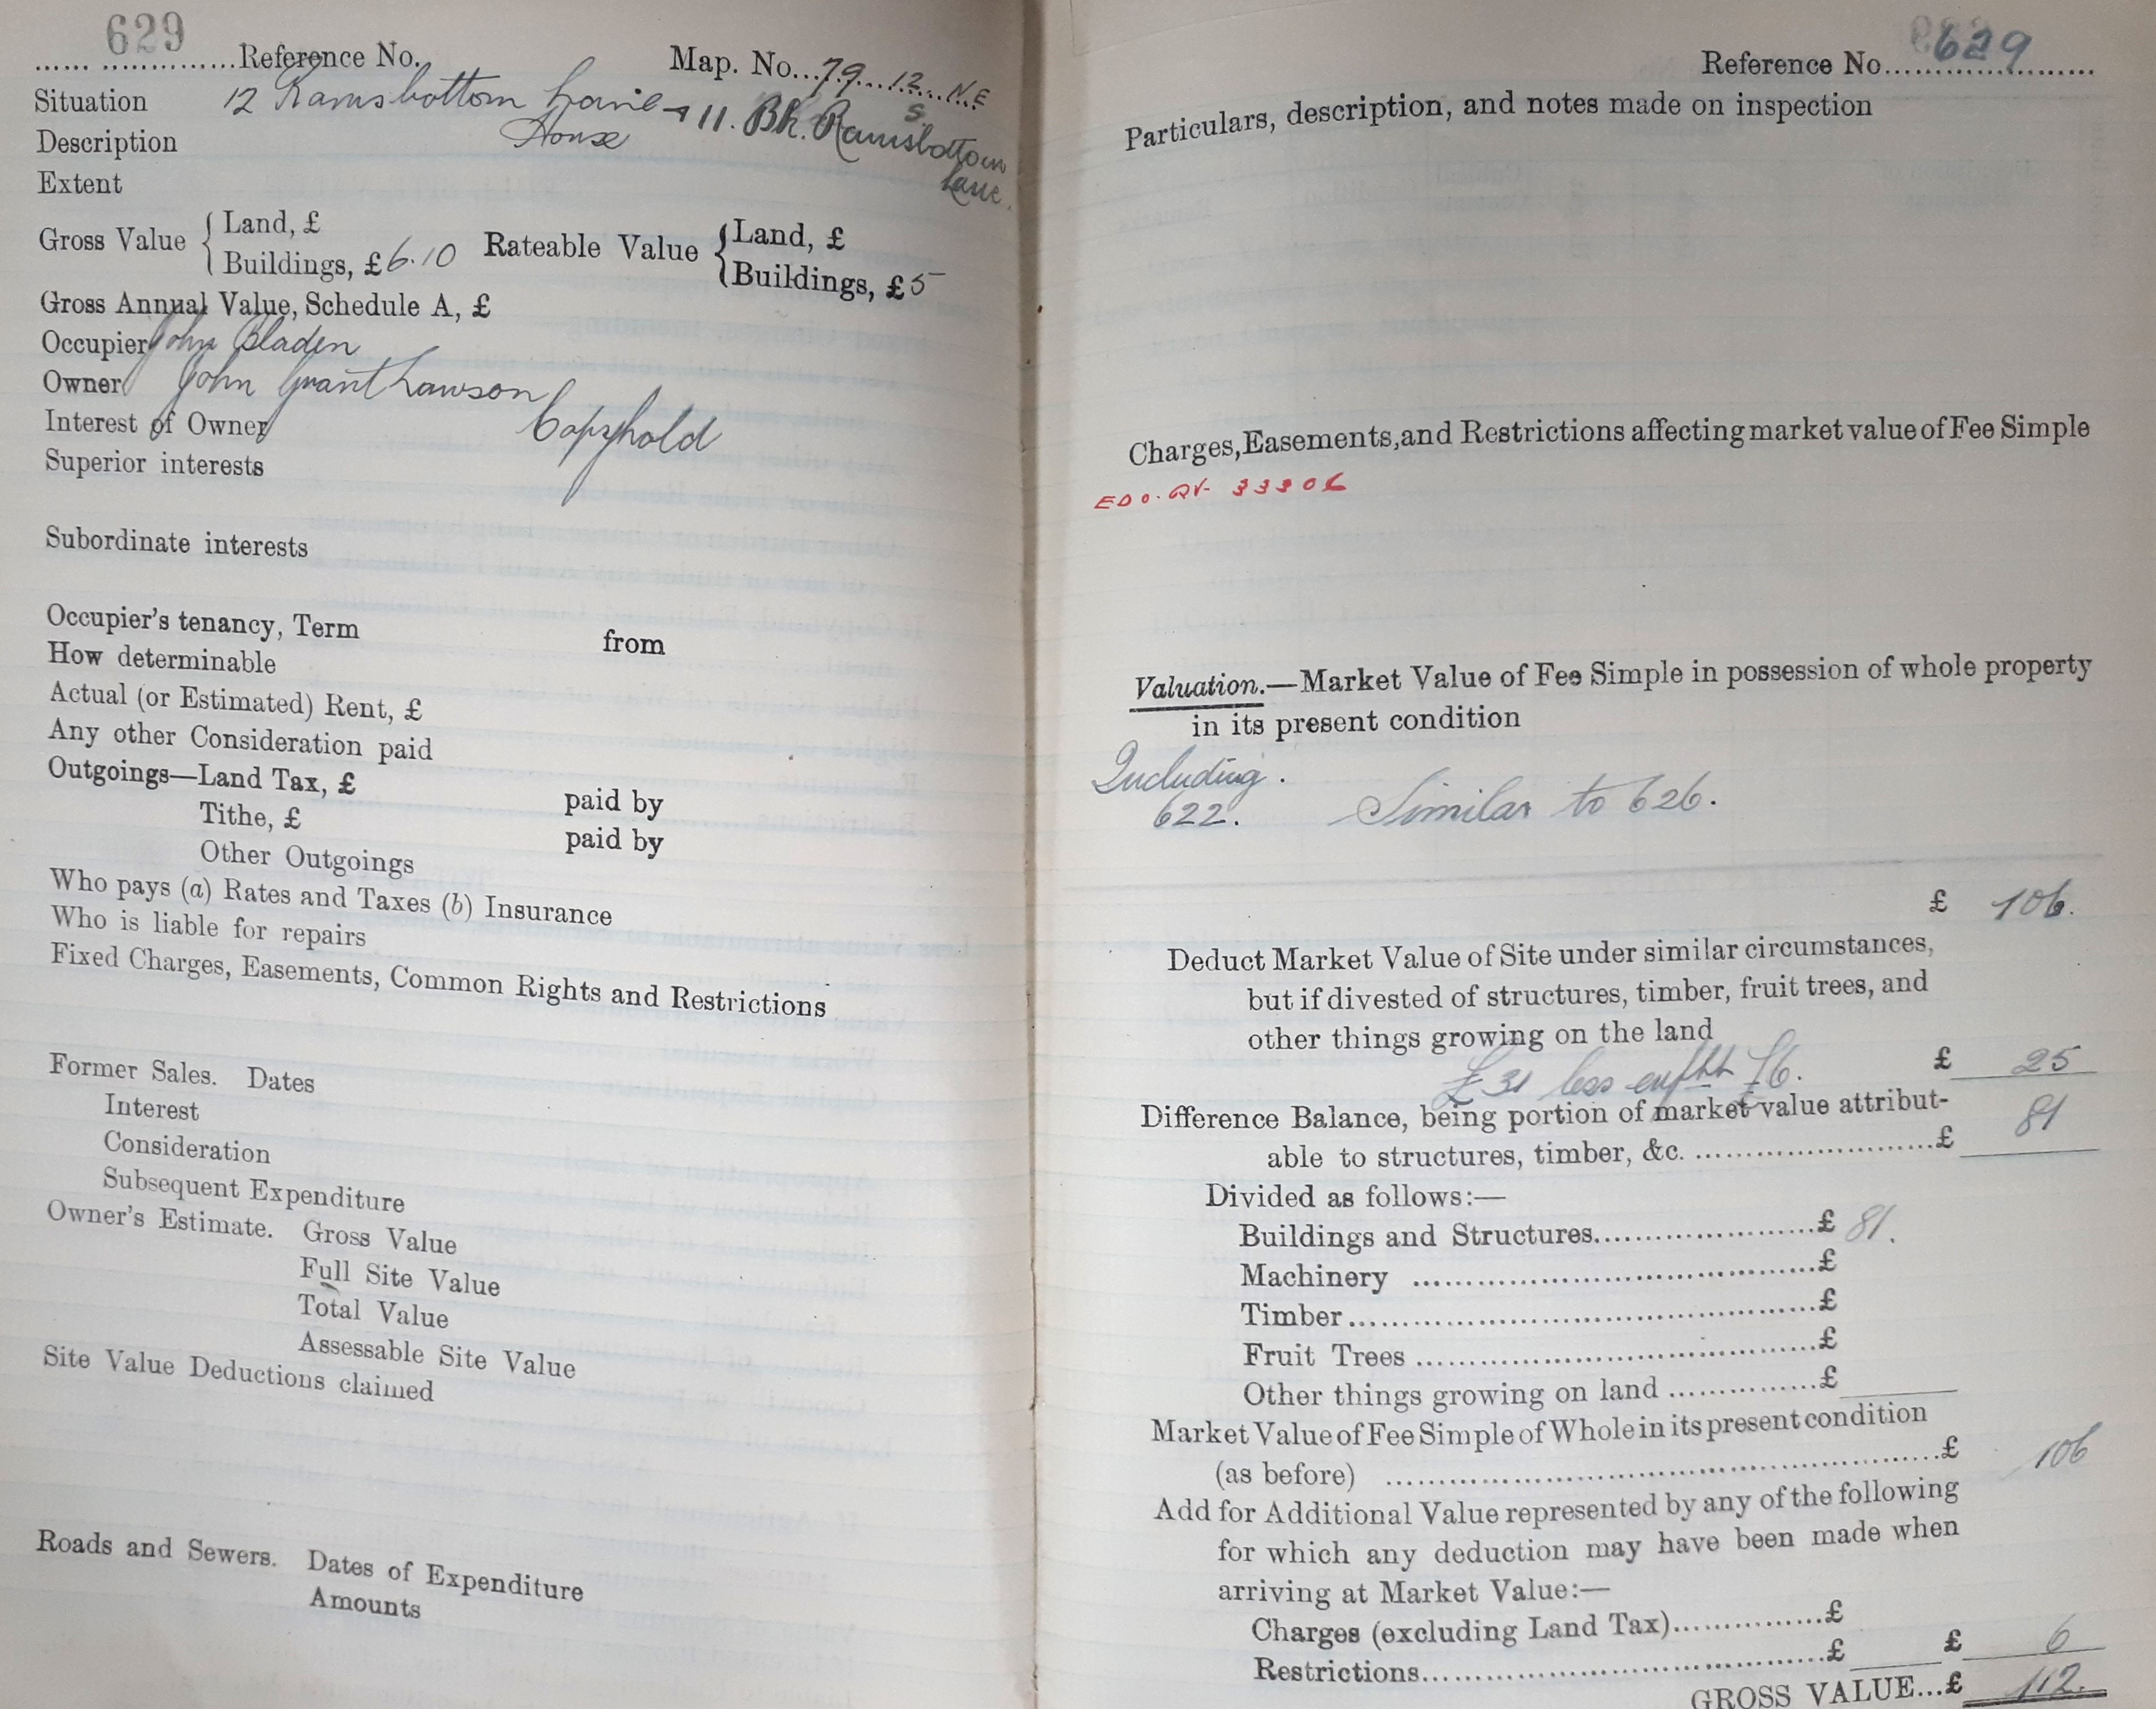 629
...... ..............Reference No. Map. No...79...12...N.E
Situation 12 Ramsbottom Lane + 11. Bk. Ramsbottom
S.
Lane.
Description House
Extent
Gross Value { Land, £ Rateable Value { Land, £
Buildings, £ 6.10 Buildings, £ 5
Gross Annual Value, Schedule A, £
Occupier John Bladen
Owner John Grant Lawson
Interest of Owner Copyhold
Superior interests
Subordinate interests
Occupier's tenancy, Term from
How determinable
Actual (or Estimated) Rent, £
Any other Consideration paid
Outgoings—Land Tax, £ paid by
Tithe, £ paid by
Other Outgoings
Who pays (a) Rates and Taxes (b) Insurance
Who is liable for repairs
Fixed Charges, Easements, Common Rights and Restrictions
Former Sales. Dates
Interest
Consideration
Subsequent Expenditure
Owner's Estimate. Gross Value
Full Site Value
Total Value
Assessable Site Value
Site Value Deductions claimed
Roads and Sewers. Dates of Expenditure
Amounts
Reference No. 629
Particulars, description, and notes made on inspection
Charges, Easements, and Restrictions affecting market value of Fee Simple
33306
Valuation.—Market Value of Fee Simple in possession of whole property
in its present condition
Including.
622. Similar to 626.
£ 106.
Deduct Market Value of Site under similar circumstances,
but if divested of structures, timber, fruit trees, and
other things growing on the land
£31 less £6. £ 25
Difference Balance, being portion of market value attribut-
able to structures, timber, &c. ........................£ 81
Divided as follows:—
Buildings and Structures......................£ 81.
Machinery ......................................£
Timber............................................£
Fruit Trees ......................................£
Other things growing on land ...............£
Market Value of Fee Simple of Whole in its present condition
(as before) ......................................................£ 106
Add for Additional Value represented by any of the following
for which any deduction may have been made when
arriving at Market Value:—
Charges (excluding Land Tax)...............£
Restrictions.......................................£ £ 6
GROSS VALUE...£ 112.